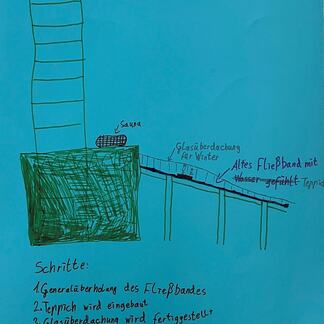 Sauna
Glasüberdachung
für Winter
Altes Fließband mit
Wasser gefühlt Teppich
Schritte:
1. Generalüberholung des Fließbandes
2. Teppich wird eingebaut
3. Glasüberdachung wird fertiggestellt